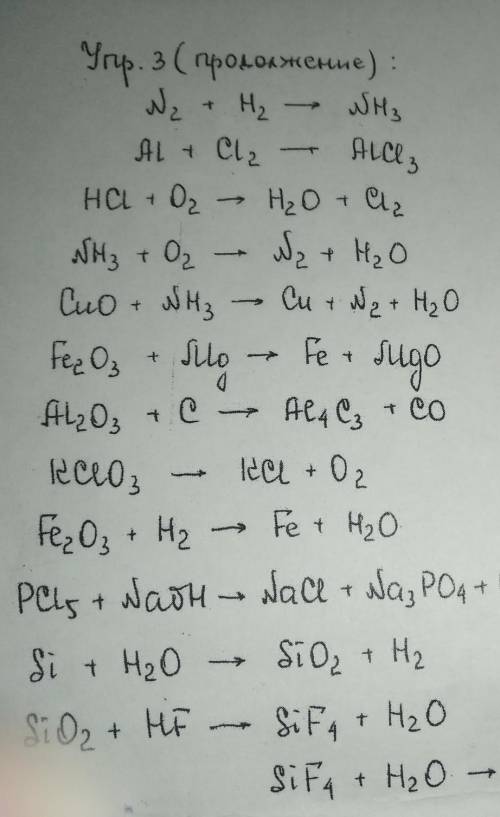 Упр. 3 (продолжение):
N₂ + H₂ → NH₃
Al + Cl₂ → AlCl₃
HCl + O₂ → H₂O + Cl₂
NH₃ + O₂ → N₂ + H₂O
CuO + NH₃ → Cu + N₂ + H₂O
Fe₂O₃ + Mg → Fe + MgO
Al₂O₃ + C → Al₄C₃ + CO
KClO₃ → KCl + O₂
Fe₂O₃ + H₂ → Fe + H₂O
PCl₅ + NaOH → NaCl + Na₃PO₄ +
Si + H₂O → SiO₂ + H₂
SiO₂ + HF → SiF₄ + H₂O
SiF₄ + H₂O →